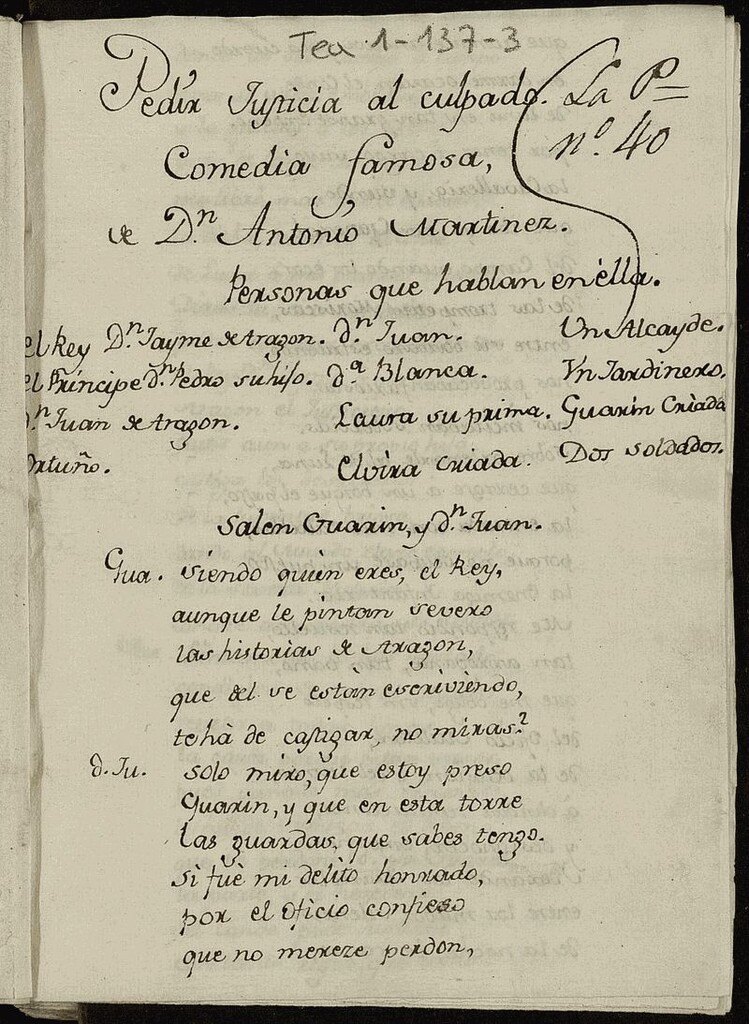 Tea 1-137-3
Pedir Justicia al culpado. La P=
nº. 40
Comedia famosa,
de D.n Antonio Martinez.
Personas que hablan en èlla.
el Rey D.n Jayme de Aragon. d.n Juan. Un Alcayde.
el Príncipe d.n Pedro su hijo. d.ª Blanca. Vn Jardinero.
D.n Juan de Aragon. Laura su prima. Guarin Criado
Ortuño. Elvira criada. Dos soldados.
Salen Guarin, y d.n Juan.
Gua. siendo quien eres, el Rey,
aunque le pintan severo
las historias de Aragon,
que del se estàn escriviendo,
te hà de castigar, no miras?
d. Ju. solo miro, que estoy preso
Guarin, y que en esta torre
las guardas, que sabes tengo.
si fuè mi delito honrado,
por el oficio confieso
que no mereze perdon,